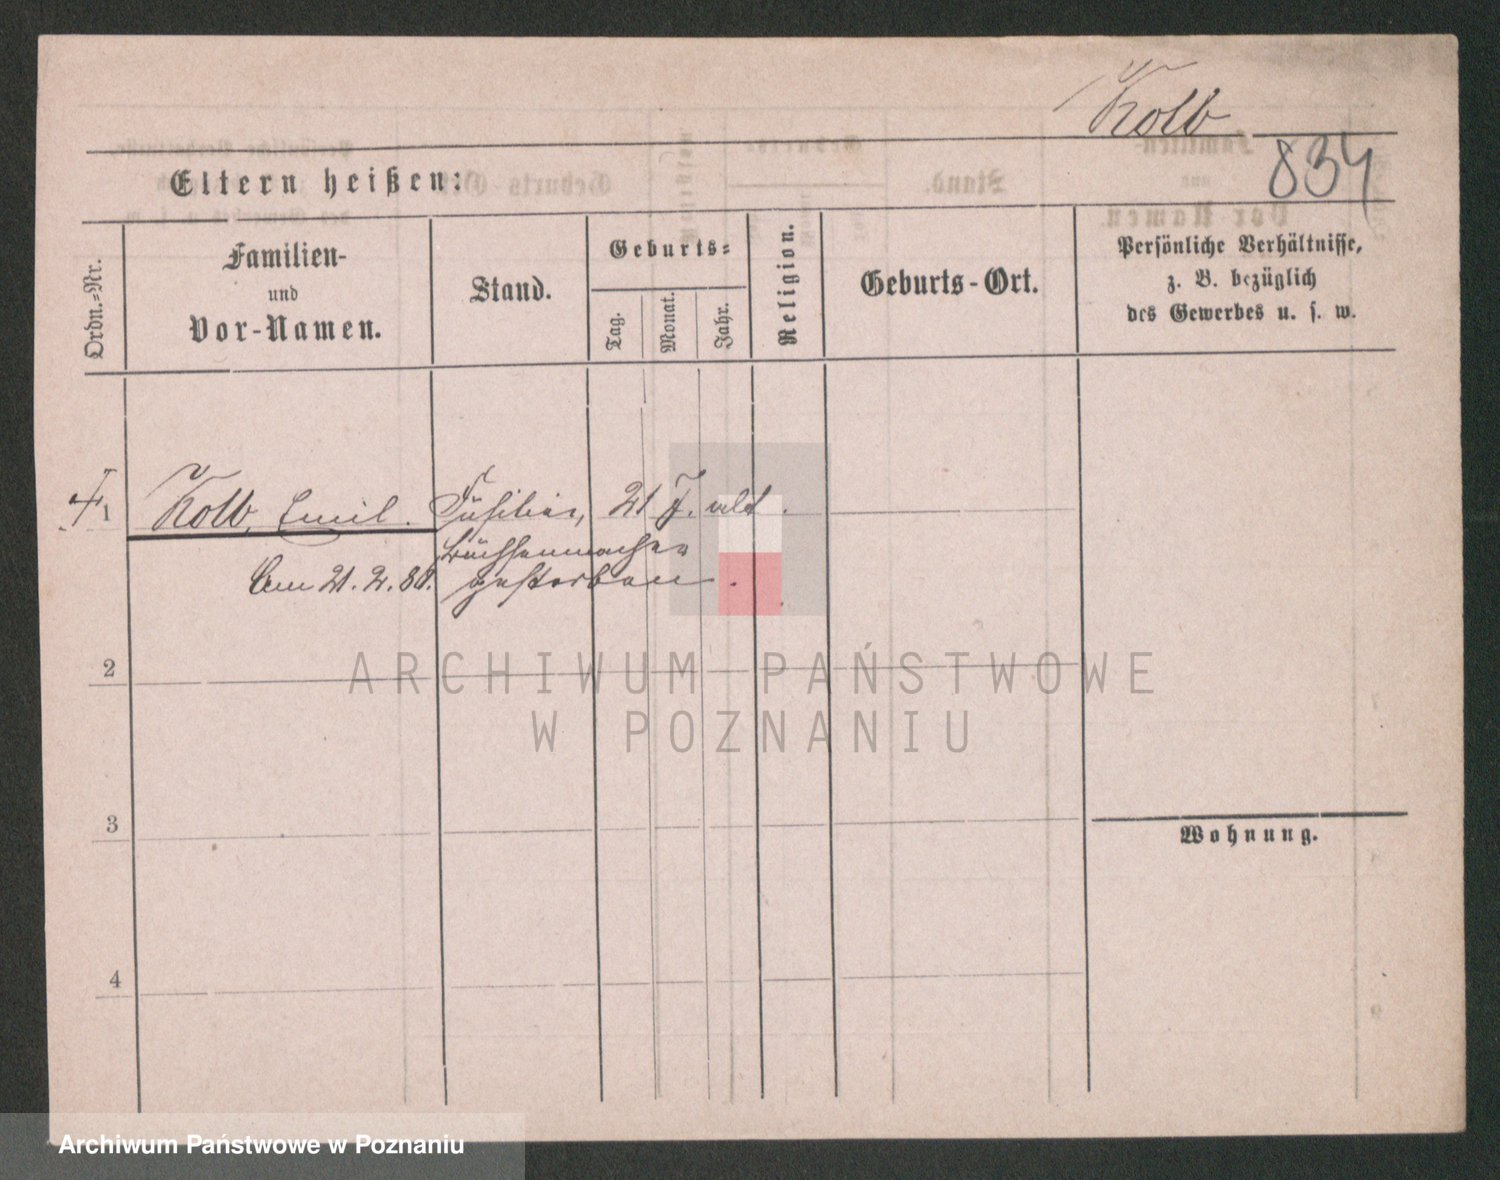 Kolb
834
Eltern heißen:
Ordn.=Nr.
Familien-
und
Vor-Namen.
Stand.
Geburts=
Tag.
Monat.
Jahr.
Religion.
Geburts-Ort.
Persönliche Verhältnisse,
z. B. bezüglich
des Gewerbes u. s. w.
1 Kolb, Emil. Füsilier, 21 J. alt.
Büchsenmacher
Am 21. 2. 80. gestorben.
2
ARCHIWUM PAŃSTWOWE
W POZNANIU
3
Wohnung.
4
Archiwum Państwowe w Poznaniu